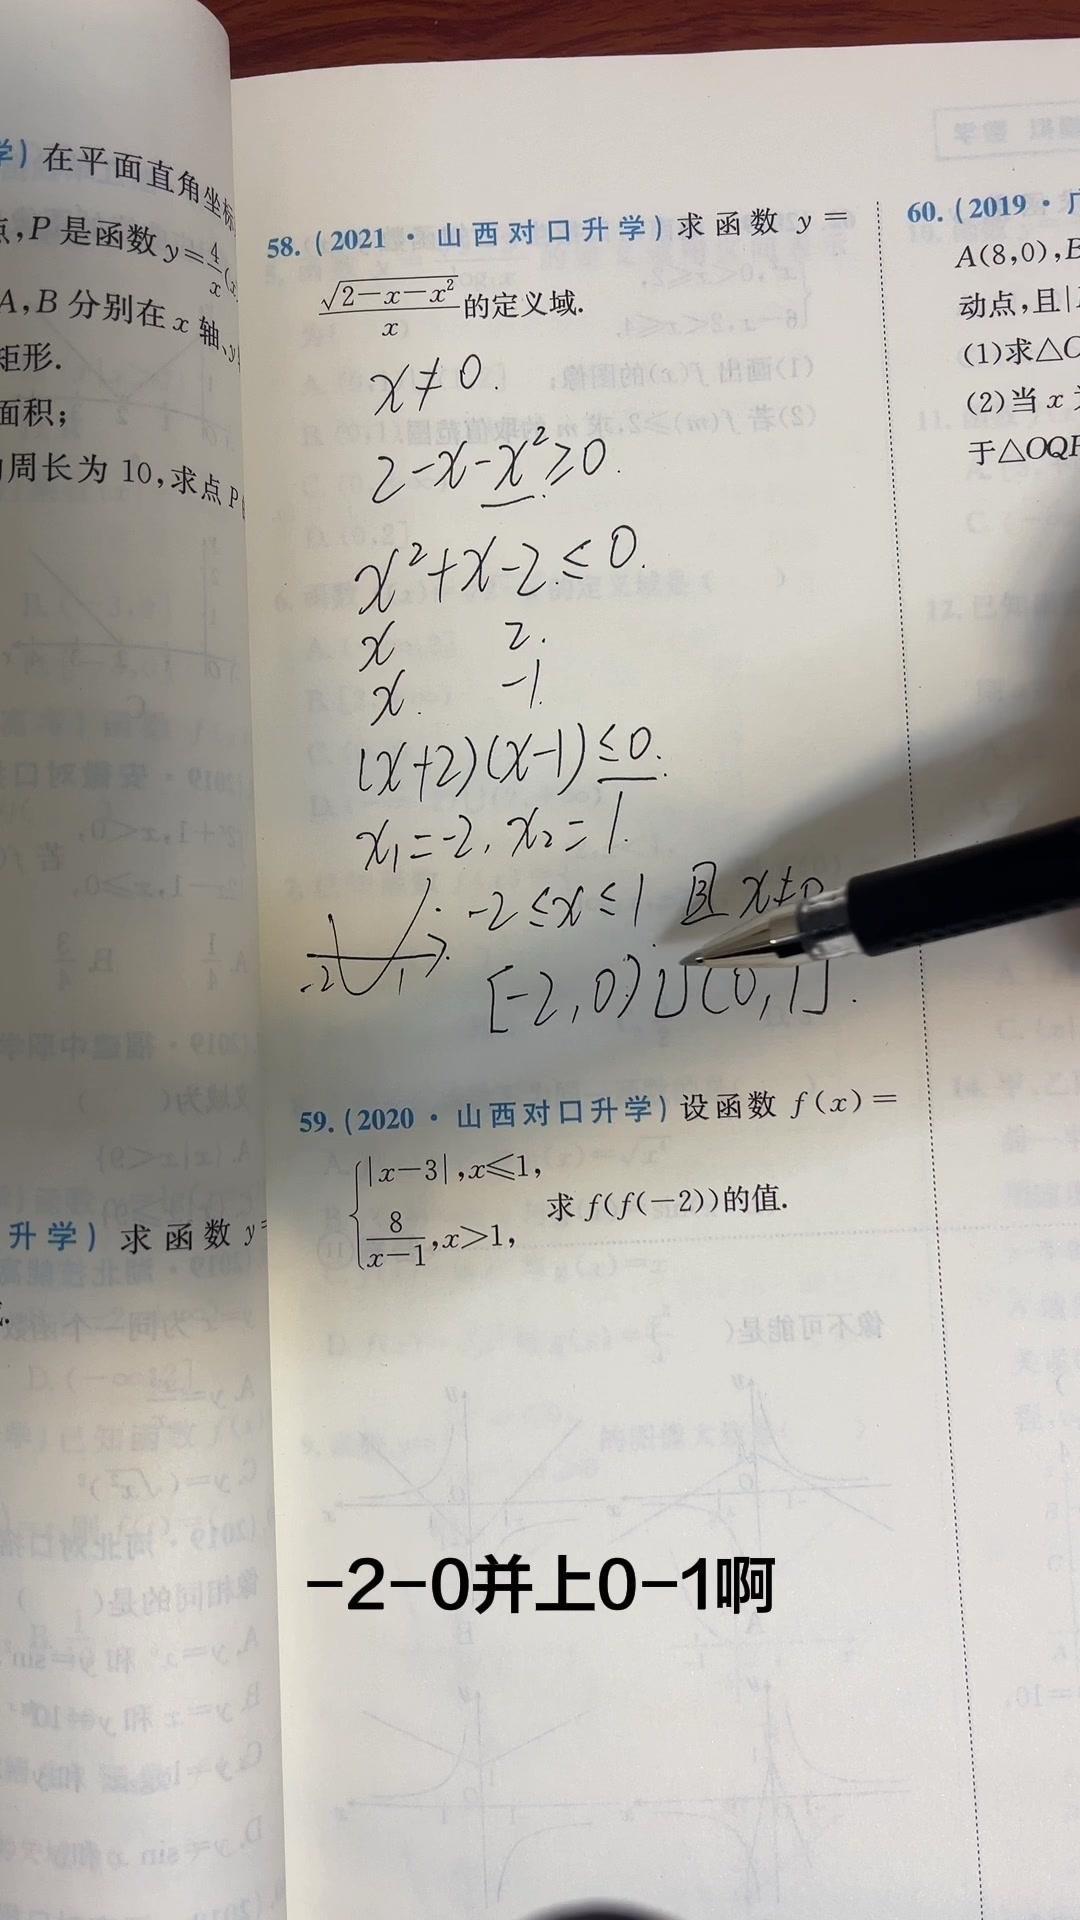 学) 在平面直角坐标
点,P 是函数 y=4/x(x
A,B 分别在 x 轴、y
矩形.
面积;
周长为 10,求点 P
升学) 求 函 数 y=
58. (2021 · 山西对口升学) 求 函 数 y =
√(2-x-x²)/x 的定义域.
x≠0.
2-x-x²≥0.
x²+x-2≤0.
x 2.
x. -1
(x+2)(x-1)≤0.
x₁=-2, x₂=1.
-2≤x≤1 且 x≠0
-2 1
[-2,0)∪(0,1].
59. (2020 · 山西对口升学) 设函数 f(x)=
|x-3|,x⩽1,
8/(x-1),x>1,
求 f(f(-2))的值.
60. (2019 · 广
A(8,0),B
动点,且|
(1)求△O
(2)当 x
于△OQP
-2-0并上0-1啊